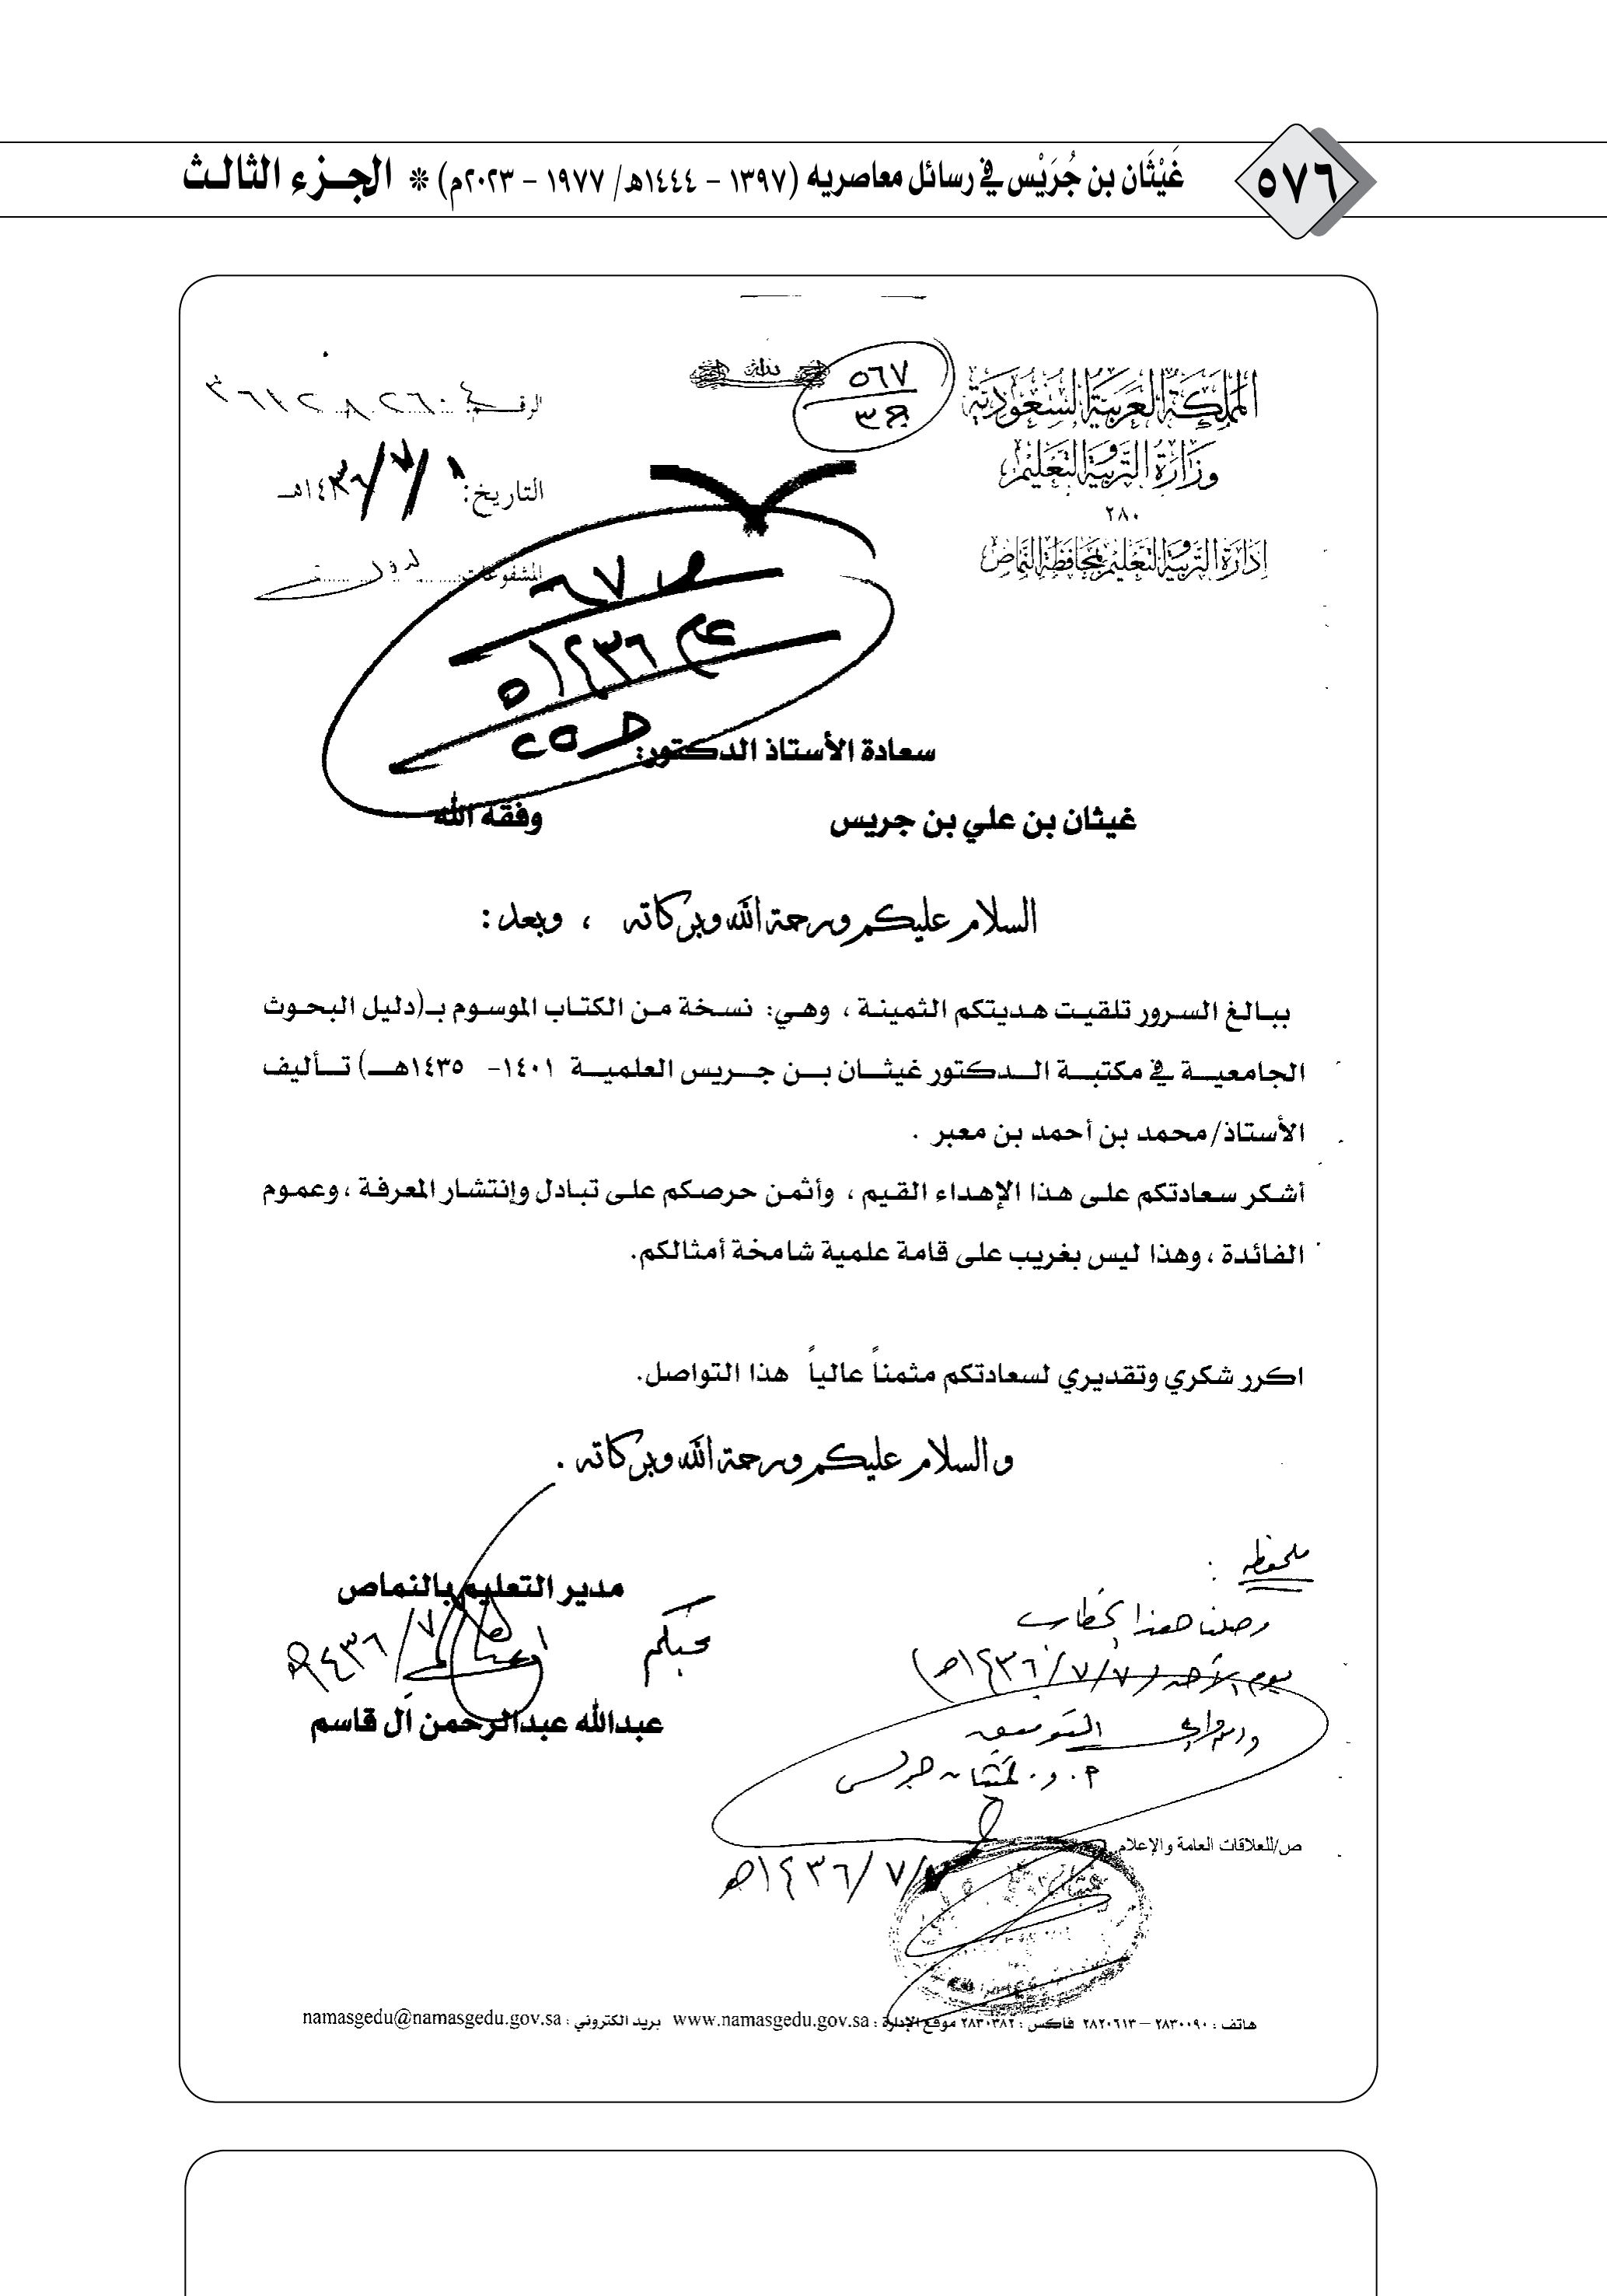 ٥٧٦
غَيْثَان بن جُرَيْس في رسائل معاصريه (١٣٩٧ - ١٤٤٤هـ/ ١٩٧٧ - ٢٠٢٣م) * الجزء الثالث
المملكة العربية السعودية
وزارة التربية والتعليم
٢٨٠
إدارة التربية والتعليم بمحافظة النماص
٥٦٧
الرقم:
التاريخ: ١ /٧/ ١٤٣٦هـ
المشفوعات:
سعادة الأستاذ الدكتور:
غيثان بن علي بن جريس وفقه الله
السلام عليكم ورحمة الله وبركاته ، وبعد :
ببالغ السرور تلقيت هديتكم الثمينة ، وهي: نسخة من الكتاب الموسوم بـ(دليل البحوث
الجامعية في مكتبة الدكتور غيثان بن جريس العلمية ١٤٠١- ١٤٣٥هـ) تأليف
الأستاذ/محمد بن أحمد بن معبر .
أشكر سعادتكم على هذا الإهداء القيم ، وأثمن حرصكم على تبادل وإنتشار المعرفة ، وعموم
الفائدة ، وهذا ليس بغريب على قامة علمية شامخة أمثالكم.
اكرر شكري وتقديري لسعادتكم مثمناً عالياً هذا التواصل.
والسلام عليكم ورحمة الله وبركاته .
مدير التعليم بالنماص
محبكم
عبدالله عبدالرحمن آل قاسم
ملحوظه :
وصلنا هذا الخطاب
يوم الأحد (٧/٧/١٤٣٦هـ)
التوفيق
أ. د. غيثان جريس
٧/٧/١٤٣٦هـ
ص/للعلاقات العامة والإعلام
هاتف : ٢٨٣٠٠٩٠ – ٢٨٢٠٦١٣ فاكس : ٢٨٣٠٣٨٢ موقع الإدارة : www.namasgedu.gov.sa بريد الكتروني : namasgedu@namasgedu.gov.sa